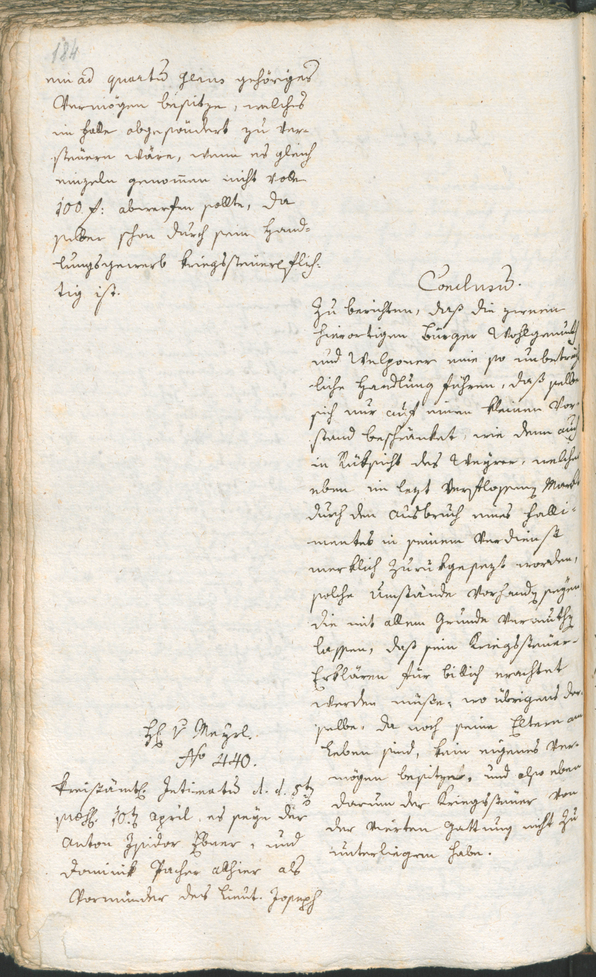 184
ein ad quartum genus gehöriges
Vermögen besitze, welches
im Falle abgesöndert zu ver-
steuern wäre, wenn es gleich
einzeln genommen nicht volle
100 f: abwerfen sollte, da
selber schon durch sein Hand-
lungsgewerb kriegssteuerpflich-
tig ist.
Conclusum.
Zu berichten, daß die zween
hierortigen Bürger Wohlgemuth
und Welponer eine so unbeträcht-
liche Handlung führen, daß selbe
sich nur auf einen kleinen Vor-
stand beschränket, wie denn auch
in Rüksicht des Weyrer, welcher
eben im letzt verflossenen Markt
durch den Ausbruch eines Falli-
mentes in seinem Verdienste
merklich zurükgesezt worden,
solche Umstände vorhanden seyen
die mit allem Grunde vermuthen
lassen, daß sein Kriegssteuer-
Erklären für billich erachtet
werden müße, wo übrigens der-
selbe, da noch seine Eltern am
Leben sind, kein eigenes Ver-
mögen besitzet, und also eben
darum der Kriegssteuer von
der vierten Gattung nicht zu
unterliegen habe.
H. v Mayrl.
No 440.
Kreisämtl. Intimatum d. d. 5ten
praes. 10ten April, es seye der
Anton Isidor Ebner, und
Dominik Pacher allhier als
Vormünder des Lieut. Joseph